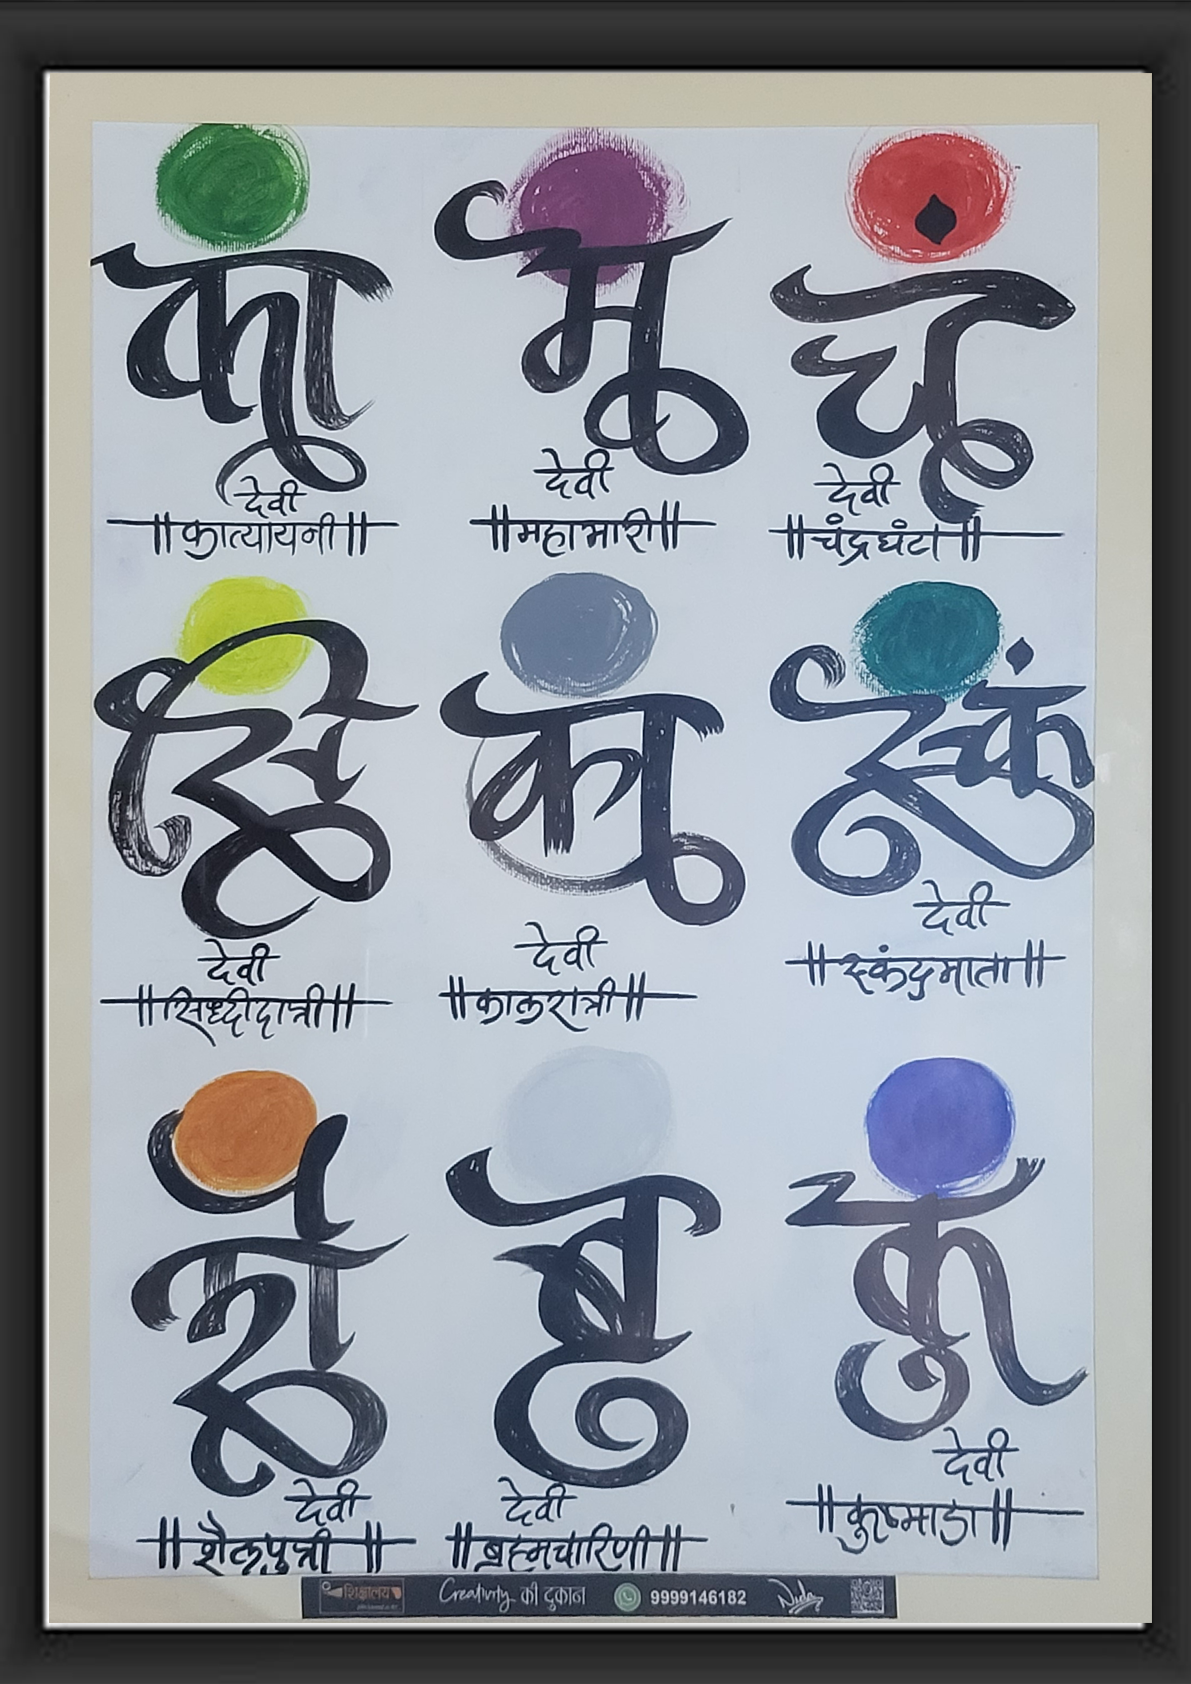 का
म
चं
देवी
॥ कात्यायनी ॥
देवी
॥ महामारी ॥
देवी
॥ चंद्रघंटा ॥
सि
का
स्कं
देवी
॥ सिध्दीदात्री ॥
देवी
॥ कालरात्री ॥
देवी
॥ स्कंदमाता ॥
शै
ब्र
कु
देवी
॥ शैलपुत्री ॥
देवी
॥ ब्रह्मचारिणी ॥
देवी
॥ कुष्माडा ॥
शिक्षालय Creativity की दुकान 9999146182